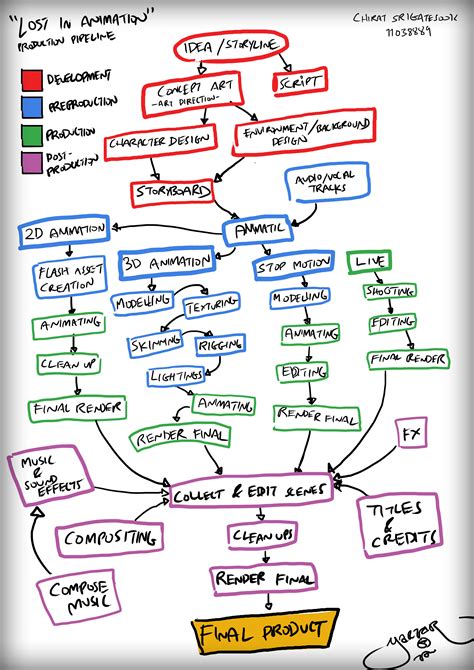 "LOST IN ANIMATION"
PRODUCTION PIPELINE
CHIRAT SRIGATESOOK
11038889
DEVELOPMENT
PREPRODUCTION
PRODUCTION
POST-
PRODUCTION
IDEA/STORYLINE
CONCEPT ART
-ART DIRECTION-
SCRIPT
CHARACTER DESIGN
ENVIRONMENT/BACKGROUND
DESIGN
STORYBOARD
AUDIO/VOCAL
TRACKS
2D ANIMATION
ANIMATIC
FLASH ASSET
CREATION
3D ANIMATION
STOP MOTION
LIVE
MODELLING
TEXTURING
MODELLING
SHOOTING
ANIMATING
SKINNING
RIGGING
ANIMATING
EDITING
CLEAN UP
LIGHTINGS
EDITING
FINAL RENDER
FINAL RENDER
ANIMATING
RENDER FINAL
RENDER FINAL
FX
MUSIC
&
SOUND
EFFECTS
COLLECT & EDIT SCENES
COMPOSITING
CLEAN UPS
TITLES
&
CREDITS
COMPOSE
MUSIC
RENDER FINAL
FINAL PRODUCT